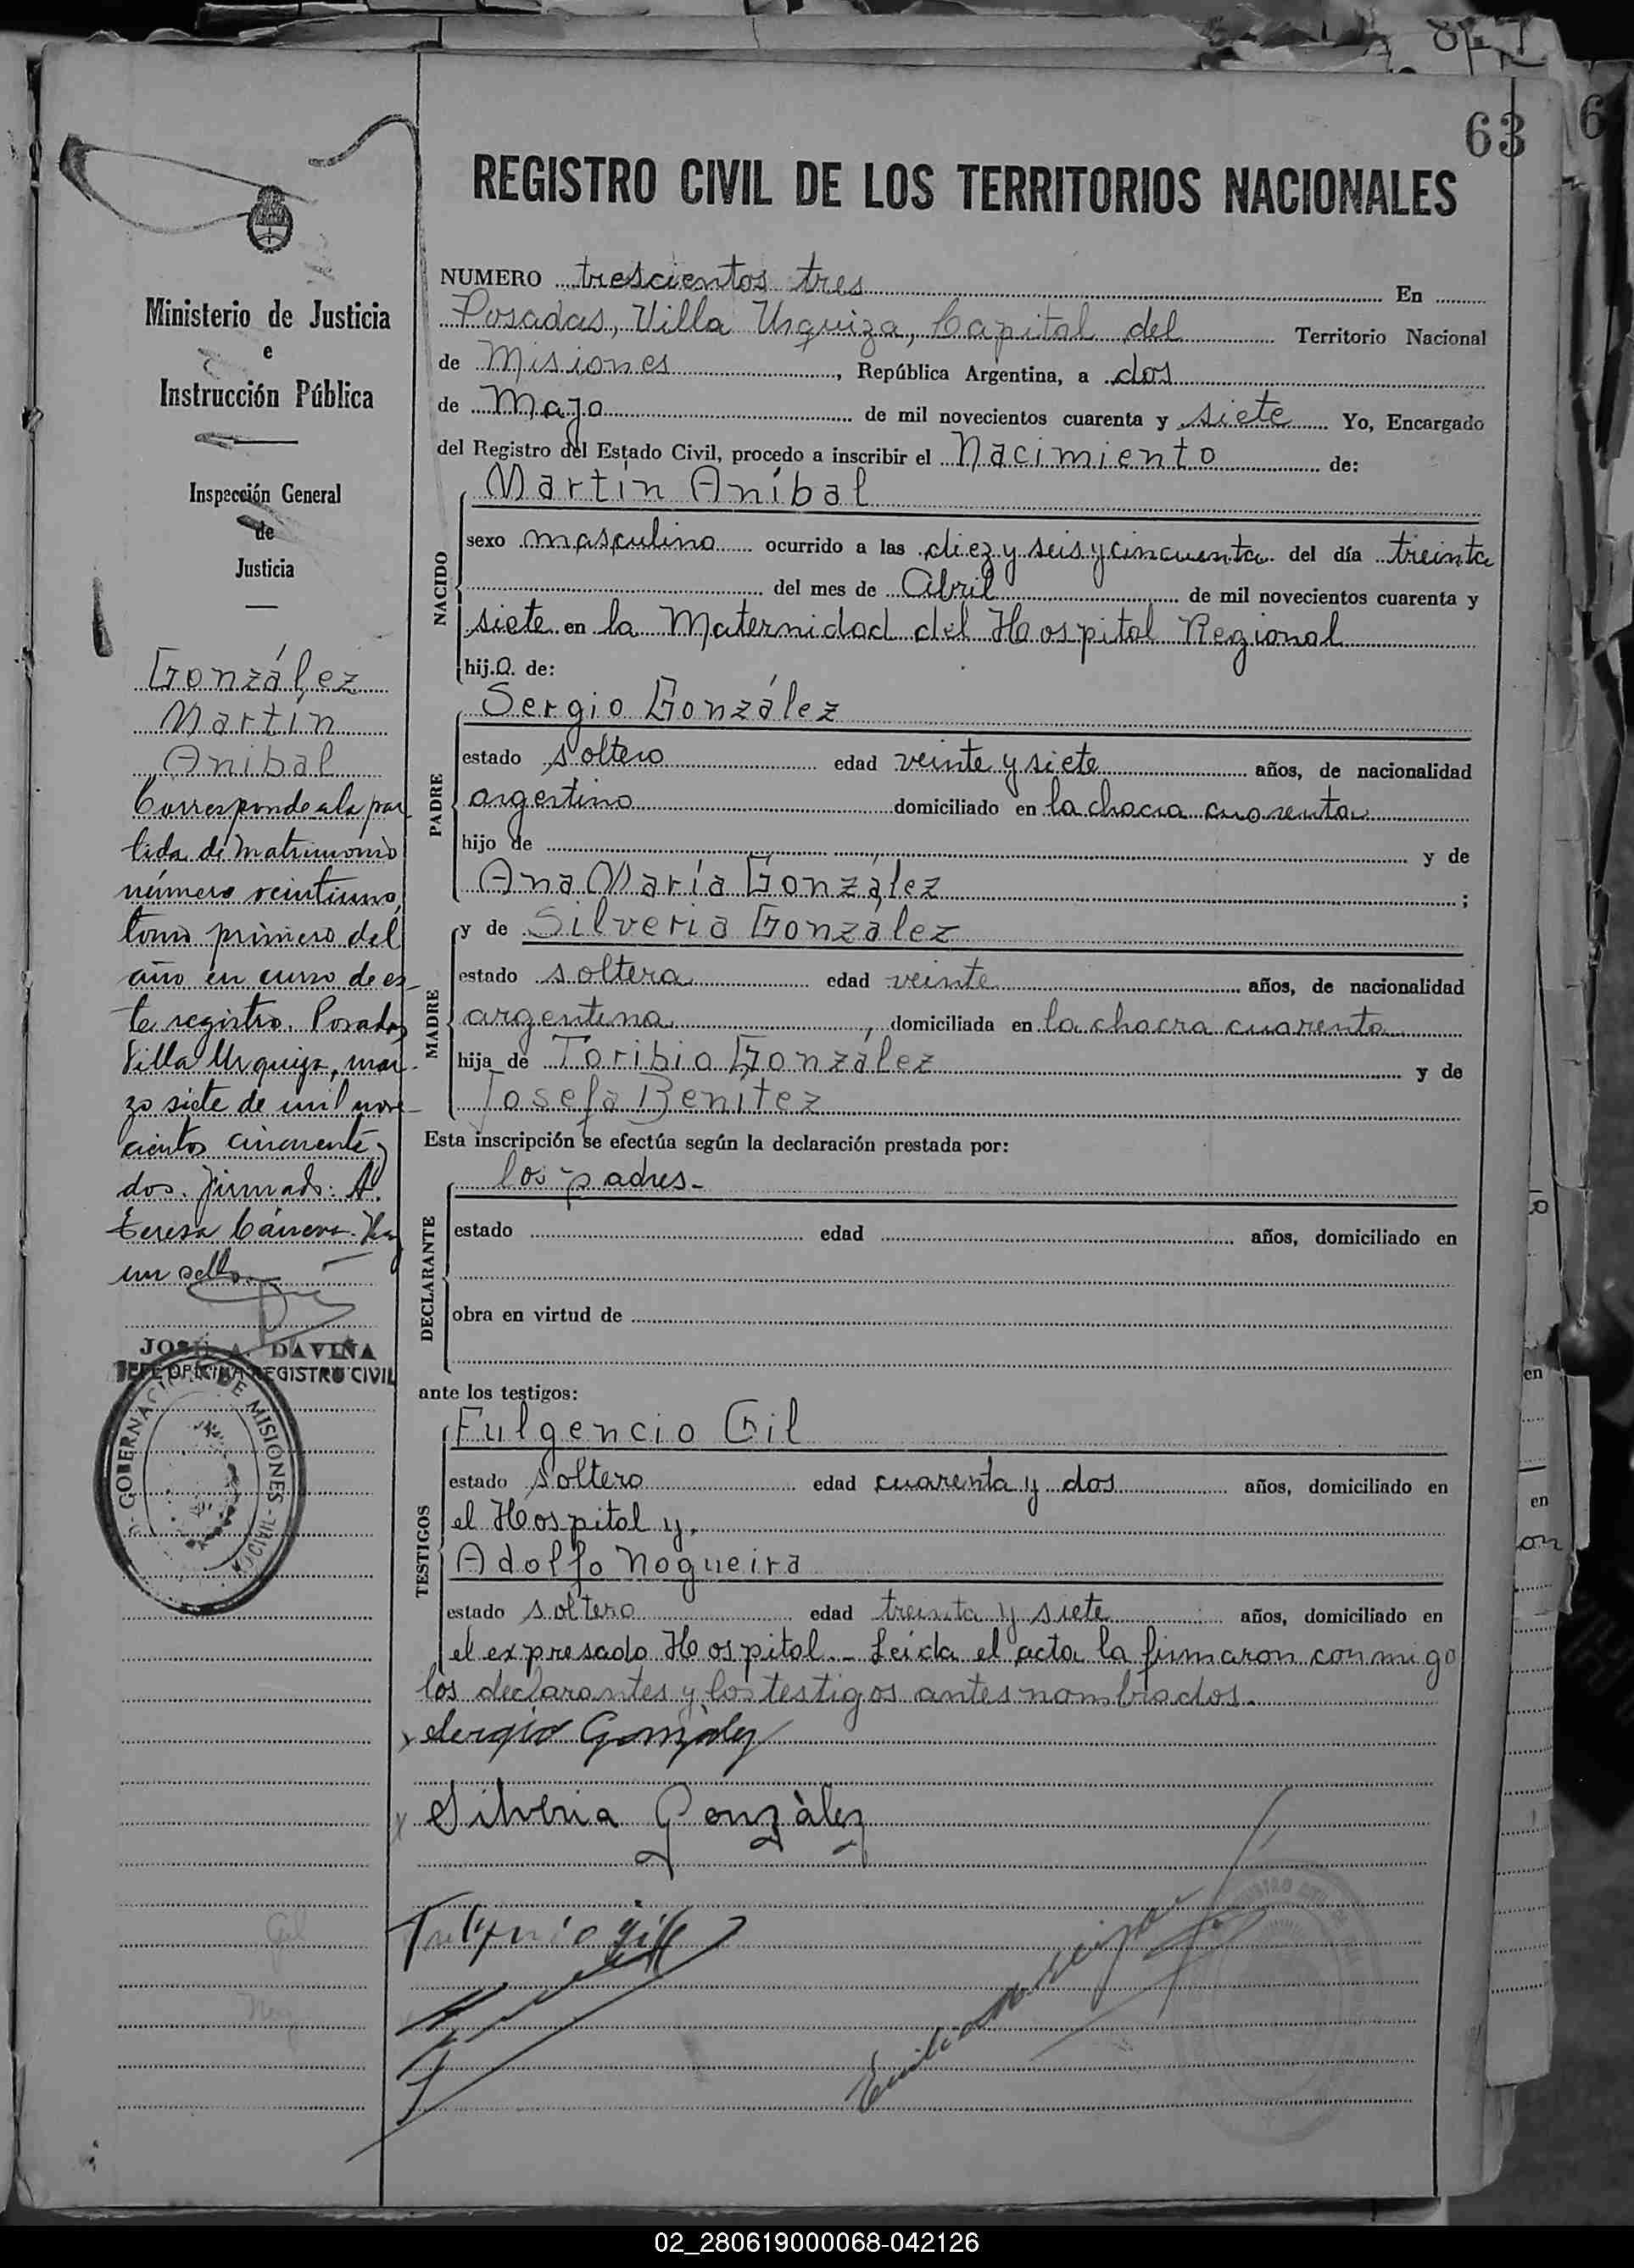 63
REGISTRO CIVIL DE LOS TERRITORIOS NACIONALES
Ministerio de Justicia
e
Instrucción Pública
Inspección General
de
Justicia
González
Martín
Anibal
Corresponde a la par
tida de Matrimonio
número veintiuno,
tomo primero del
año en curso de es-
te registro. Posadas,
Villa Urquiza, mar-
zo siete de mil nove-
cientos cincuenta y
dos. Firmado: A.
Teresa Hay
un sello.
JOSÉ A. DAVIÑA
JEFE OFICINA REGISTRO CIVIL
GOBERNACION DE MISIONES
NUMERO trescientos tres En
Posadas, Villa Urquiza, Capital del Territorio Nacional
de Misiones, República Argentina, a dos
de Mayo de mil novecientos cuarenta y siete Yo, Encargado
del Registro del Estado Civil, procedo a inscribir el Nacimiento de:
NACIDO
Martín Aníbal
sexo masculino ocurrido a las diez y seis y cincuenta del día treinta
del mes de Abril de mil novecientos cuarenta y
siete en la Maternidad del Hospital Regional
hij.o. de:
PADRE
Sergio González
estado soltero edad veinte y siete años, de nacionalidad
argentino domiciliado en la chacra cuarenta
hijo de y de
Ana María González ;
MADRE
y de Silveria González
estado soltera edad veinte años, de nacionalidad
argentina, domiciliada en la chacra cuarenta
hija de Toribio González y de
Josefa Benítez
Esta inscripción se efectúa según la declaración prestada por:
DECLARANTE
los padres.-
estado edad años, domiciliado en
obra en virtud de
ante los testigos:
TESTIGOS
Fulgencio Gil
estado soltero edad cuarenta y dos años, domiciliado en
el Hospital y,
Adolfo Nogueira
estado soltero edad treinta y siete años, domiciliado en
el expresado Hospital.- Leida el acta la firmaron conmigo
los declarantes y los testigos antes nombrados.
Sergio González
Silveria Gonzàlez
02_280619000068-042126